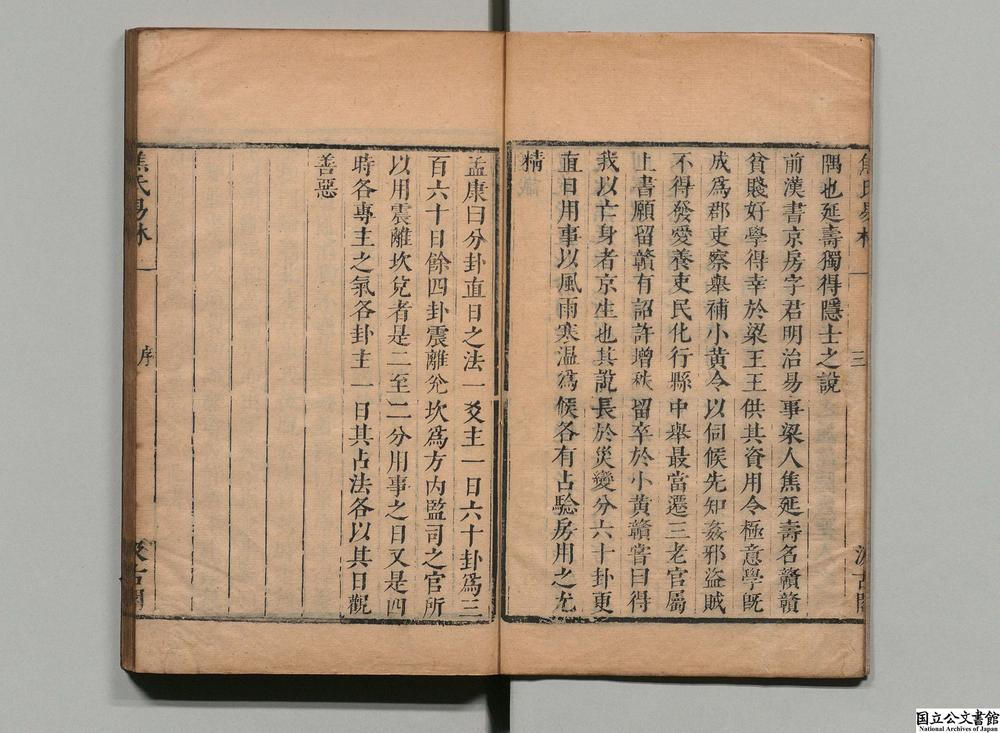 焦氏易林
一
三
汲古閣
隅也延壽獨得隱士之說
前漢書京房字君明治易事梁人焦延壽名贛贛
貧賤好學得幸於梁王王供其資用令極意學旣
成爲郡吏察舉補小黃令以伺候先知姦邪盜賊
不得發愛養吏民化行縣中舉最當遷三老官屬
上書願留贛有詔許增秩留卒於小黃贛嘗曰得
我以亡身者京生也其說長於災變分六十卦更
直日用事以風雨寒溫爲候各有占驗房用之尤
精
孟康曰分卦直日之法一爻主一日六十卦爲三
百六十日餘四卦震離兊坎爲方內監司之官所
以用震離坎兊者是二至二分用事之日又是四
時各專主之氣各卦主一日其占法各以其日觀
善惡
焦氏易林
一
序
汲古閣
国立公文書館
National Archives of Japan